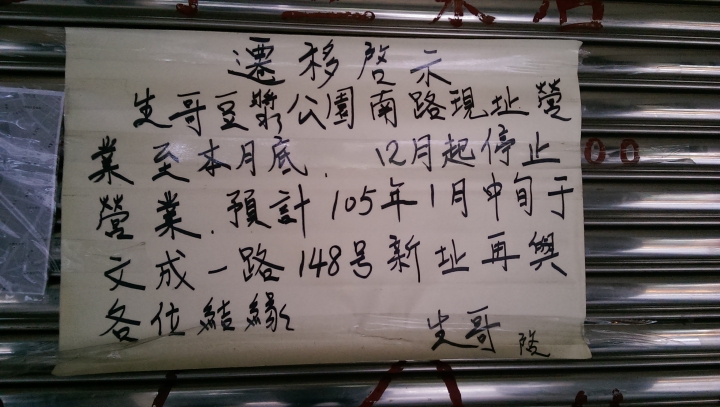 遷移啓示
生哥豆漿公園南路現址營
業至本月底. 12月起停止
營業.預計105年1月中旬于
文成一路148号新址再與
各位結緣
生哥
00